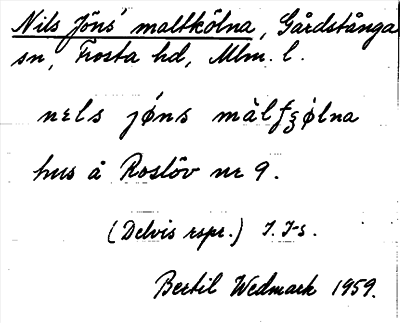 Nils Jöns' maltkölna, Gårdstånga
sn, Frosta hd, Mlm. l.
nɛls jǿns màlfʒǿlna
hus å Roslöv nr 9.
(Delvis rspr.) I. I-s.
Bertil Wedmark 1959.